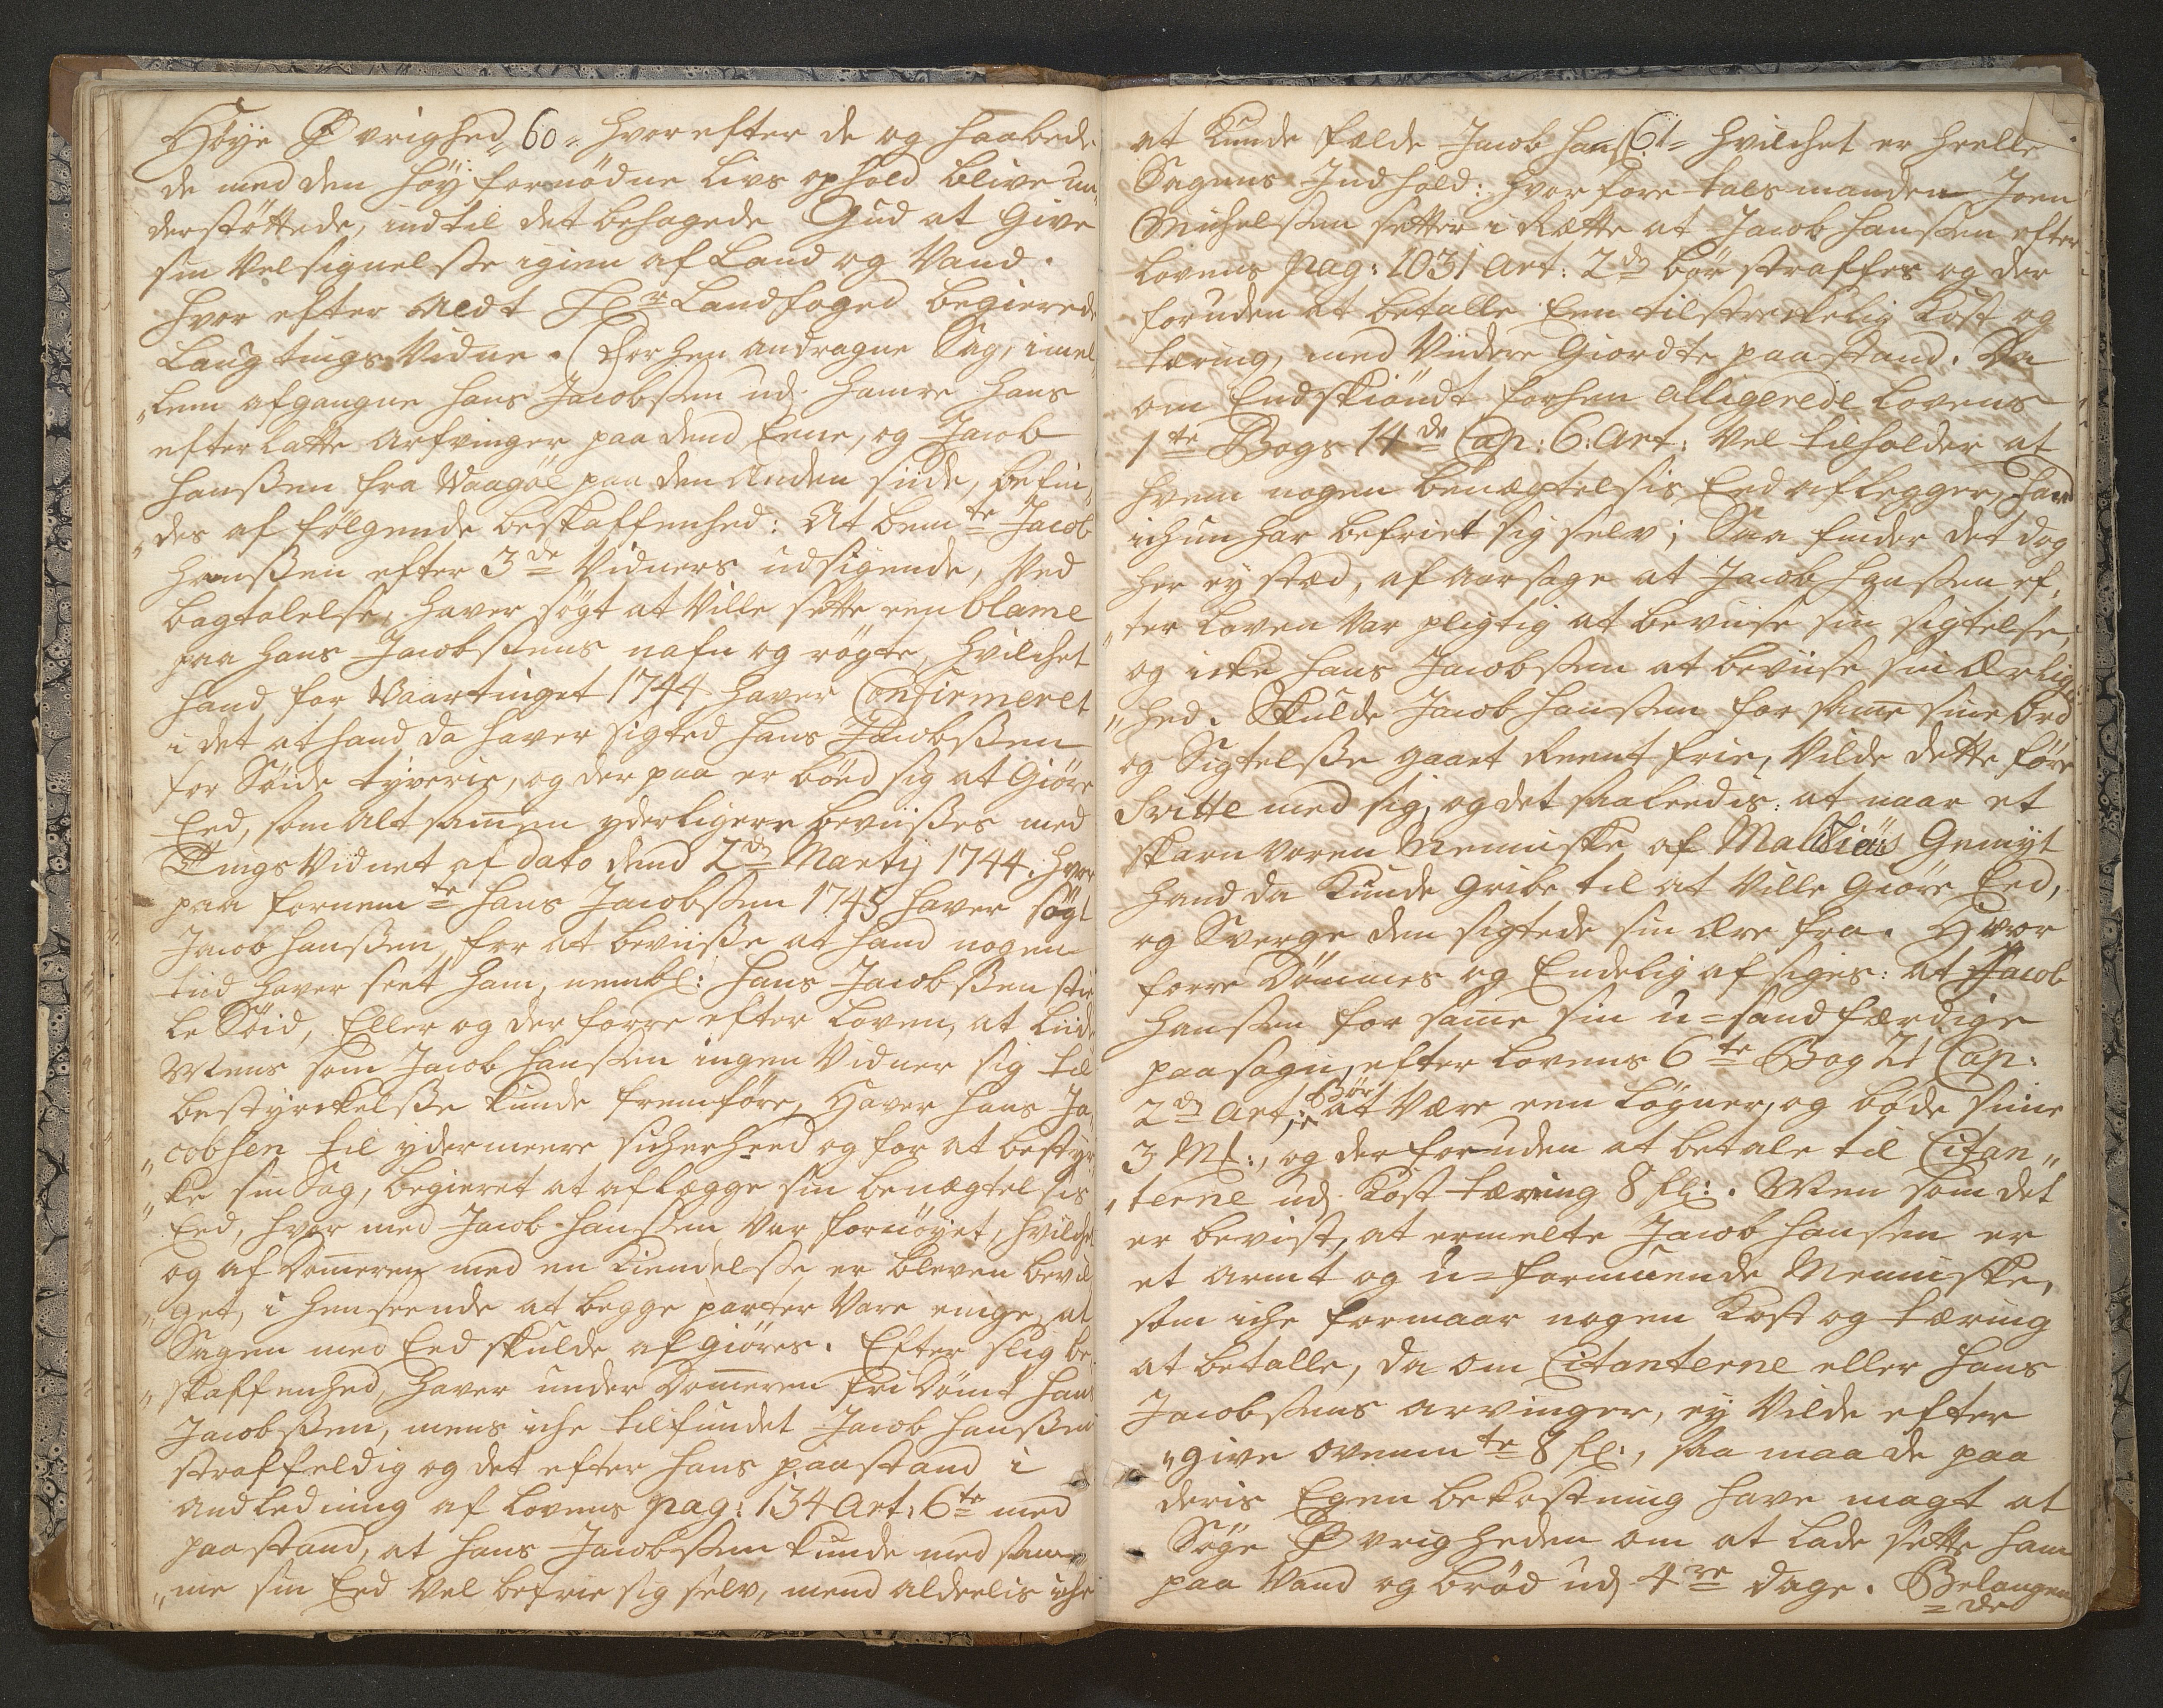 Høye Øvrighed, 60 hvorefter de og haabede
de med den høy fornødne Livs ophold blive un„
derstøttede, indtil det behagede Gud at Give
sin Velsignelsse igien af Land og Vand.
Hvor efter Hr Landfoged begierede
Laugtings Vidne. Forhen andragne Sag, imel„
„lem afgangne Hans Jacobssen udj Hamre Hans
efterlatte Arfvinger paa dend Eene, og Jacob
Hanssen fra Waagøe paa den Anden side, befin„
„des af følgende beskaffenhed: At bemte Jacob
Hanssen efter 3de Vidners udsigende, Ved
bagtalelse, haver søgt at Ville sette een blame
paa Hans Jacobssens nafn og røgte, hvilchet
hand for Vaartinget 1744 haver Confirmeret
i det at hand da haver sigted Hans Jacobssen
for Søide tyverie, og der paa er bøed sig at Giøre
Eed, som alt sammen yderligere beviisses med
Tings Vidnet af dato dend 2de Martij 1744. hvor
paa fornemte Hans Jacobssen 1745 haver søgt
Jacob Hanssen, for at beviisse at hand nogen
tiid haver seet ham, nembl: Hans Jacobssen stie
le Søid, Eller og der forre efter Loven, at liide
Mens som Jacob Hanssen ingen Vidner sig til
bestyrckelsse kunde fremføre, Haver Hans Ja„
„cobsen til ydermeere sicherheed og for at bestyr„
„ke sin Sag, begieret at aflegge sin benægtelsis
Eed, hvor med Jacob Hanssen Var fornøyet, hvilchet
og af Dommeren med en Kiendelsse er bleven bevil„
„get, i henseende at begge parter Vare eenige, at
Sagen med Eed skulde afgiøres. Efter slig be„
„skaffenhed, haver under Dommeren fri Dømt Hans
Jacobssen, mens iche tilfundet Jacob Hanssen
straffeldig og det efter hans paastand i
andledning af Lovens pag: 134 Art: 6te med
paastand, at Hans Jacobssen kunde med sam„
„me sin Eed Vel befrie sig selv, mend alderlis iche
at kunde fælde Jacob Hans: 61 hvilchet er heelle
Sagens Indhold: hvorfore talsmanden Joen
Michelssen setter i Rette at Jacob Hanssen efter
Lovens pag: 1031 Art: 2de bør straffes og der
foruden at betalle Een tilstreckelig Kost og
tæring, med Viidere Giordte paastand. Da
om Endskiøndt forhen alligerede Lovens
1te Bogs 14de Cap: 6: Art: Vel tilholder at
hvem nogen benægtelsis Eed aflegger, hand
ichun har befriet sig selv; Saa finder det dog
her ey sted, af aarsage at Jacob Hanssen ef„
„ter Loven Var pligtig at beviise sin sigtelse,
og icke Hans Jacobssen at beviise sin Ærlig„
„hed. Skulde Jacob Hanssen for samme sine Ord
og Sigtelsse gaaet Reent frie, Vilde dette føre
Svitte med sig, og det saaleedis: at naar et
skarn voren Menniske af Malitiøs Gemyt
hand da kunde gribe til at Ville Giøre Eed,
og Sverge den sigtede sin Ære fra. Hvor
forre Dømmes og Endelig afsiges: at Jacob
Hanssen for samme sin u=sandfærdige
paasagn, efter Lovens 6te Bog 21 Cap:
2de Art: Bør at Være een Løgner, og bøde sine
3 Mk:, og der foruden at betale til Citan„
„terne udj Kost tæring 8 fl:. Men som det
er bevist, at ermelte Jacob Hanssen er
et armt og u=formuende Menniske,
som iche formaar nogen Kost og tæring
at betalle, da om Citanterne eller Hans
Jacobssens arvinger, ey Vilde efter
„give ovenmte 8 fl:, saa maa de paa
deris Egen bekostning have magt at
Søge Øvrigheden om at lade sette ham
paa Vand og brød udj 4re dage. Belangen
=de